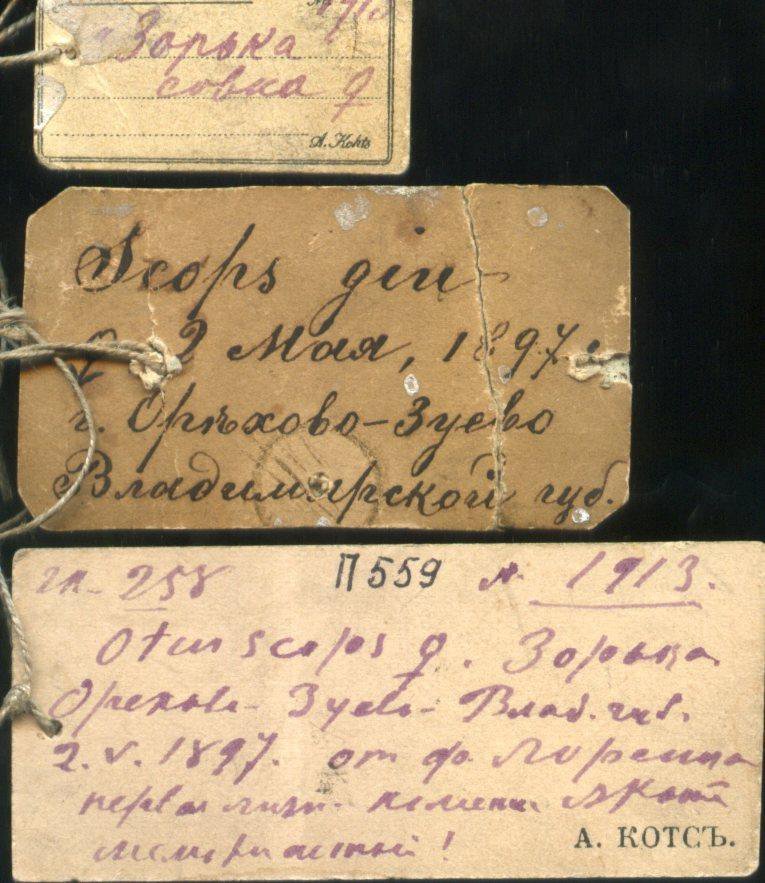 Зорька
совка ♀
A. Kohts
Scops giu
♀ 2 Мая, 1897.
г. Орѣхово-Зуево
Владимирской губ.
258 П559 № 1913.
Otus scops ♀. Зорька
Орехово-Зуево-Влад. губ.
2.V.1897. от ф. Лоренца
А. КОТСЪ.